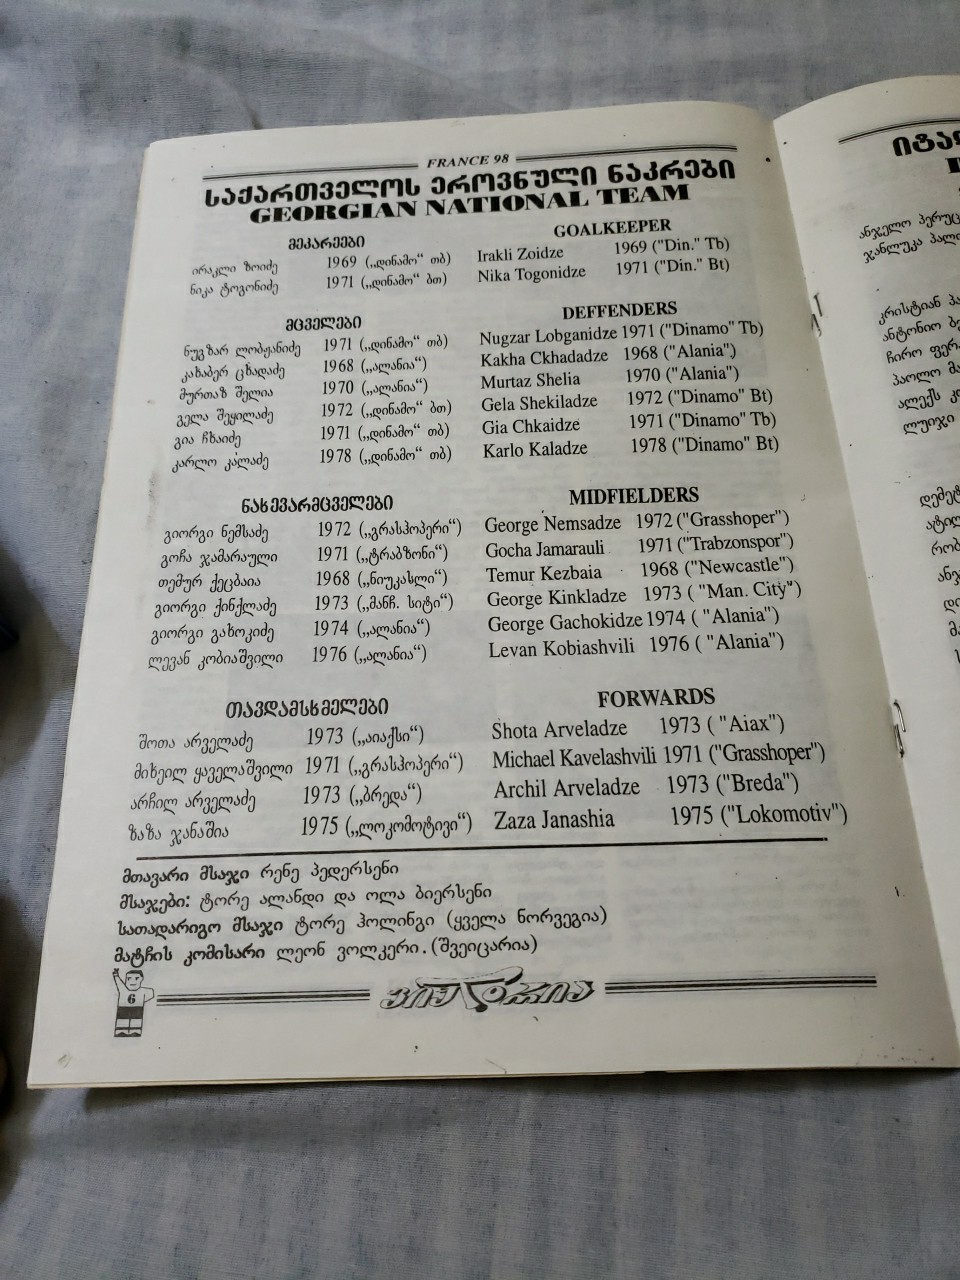 FRANCE 98
საქართველოს ეროვნული ნაკრები
GEORGIAN NATIONAL TEAM
მეკარეები
ირაკლი ზოიძე 1969 („დინამო“ თბ)
ნიკა ტოგონიძე 1971 („დინამო“ ბთ)
მცველები
ნუგზარ ლობჟანიძე 1971 („დინამო“ თბ)
კახაბერ ცხადაძე 1968 („ალანია“)
მურთაზ შელია 1970 („ალანია“)
გელა შეყილაძე 1972 („დინამო“ ბთ)
გია ჩხაიძე 1971 („დინამო“ თბ)
კარლო კალაძე 1978 („დინამო“ თბ)
ნახევარმცველები
გიორგი ნემსაძე 1972 („გრასჰოპერი“)
გოჩა ჯამარაული 1971 („ტრაბზონი“)
თემურ ქეცბაია 1968 („ნიუკასლი“)
გიორგი ქინქლაძე 1973 („მანჩ. სიტი“)
გიორგი გახოკიძე 1974 („ალანია“)
ლევან კობიაშვილი 1976 („ალანია“)
თავდამსხმელები
შოთა არველაძე 1973 („აიაქსი“)
მიხეილ ყაველაშვილი 1971 („გრასჰოპერი“)
არჩილ არველაძე 1973 („ბრედა“)
ზაზა ჯანაშია 1975 („ლოკომოტივი“)
GOALKEEPER
Irakli Zoidze 1969 ("Din." Tb)
Nika Togonidze 1971 ("Din." Bt)
DEFFENDERS
Nugzar Lobganidze 1971 ("Dinamo" Tb)
Kakha Ckhadadze 1968 ("Alania")
Murtaz Shelia 1970 ("Alania")
Gela Shekiladze 1972 ("Dinamo" Bt)
Gia Chkaidze 1971 ("Dinamo" Tb)
Karlo Kaladze 1978 ("Dinamo" Bt)
MIDFIELDERS
George Nemsadze 1972 ("Grasshoper")
Gocha Jamarauli 1971 ("Trabzonspor")
Temur Kezbaia 1968 ("Newcastle")
George Kinkladze 1973 ( "Man. City")
George Gachokidze 1974 ( "Alania")
Levan Kobiashvili 1976 ( "Alania")
FORWARDS
Shota Arveladze 1973 ( "Aiax")
Michael Kavelashvili 1971 ("Grasshoper")
Archil Arveladze 1973 ("Breda")
Zaza Janashia 1975 ("Lokomotiv")
მთავარი მსაჯი რენე პედერსენი
მსაჯები: ტორე ალანდი და ოლა ბიერსენი
სათადარიგო მსაჯი ტორე ჰოლინგი (ყველა ნორვეგია)
მატჩის კომისარი ლეონ ვოლკერი. (შვეიცარია)
6
ანტონიო
პაოლო
ალექს
ლუიჯი